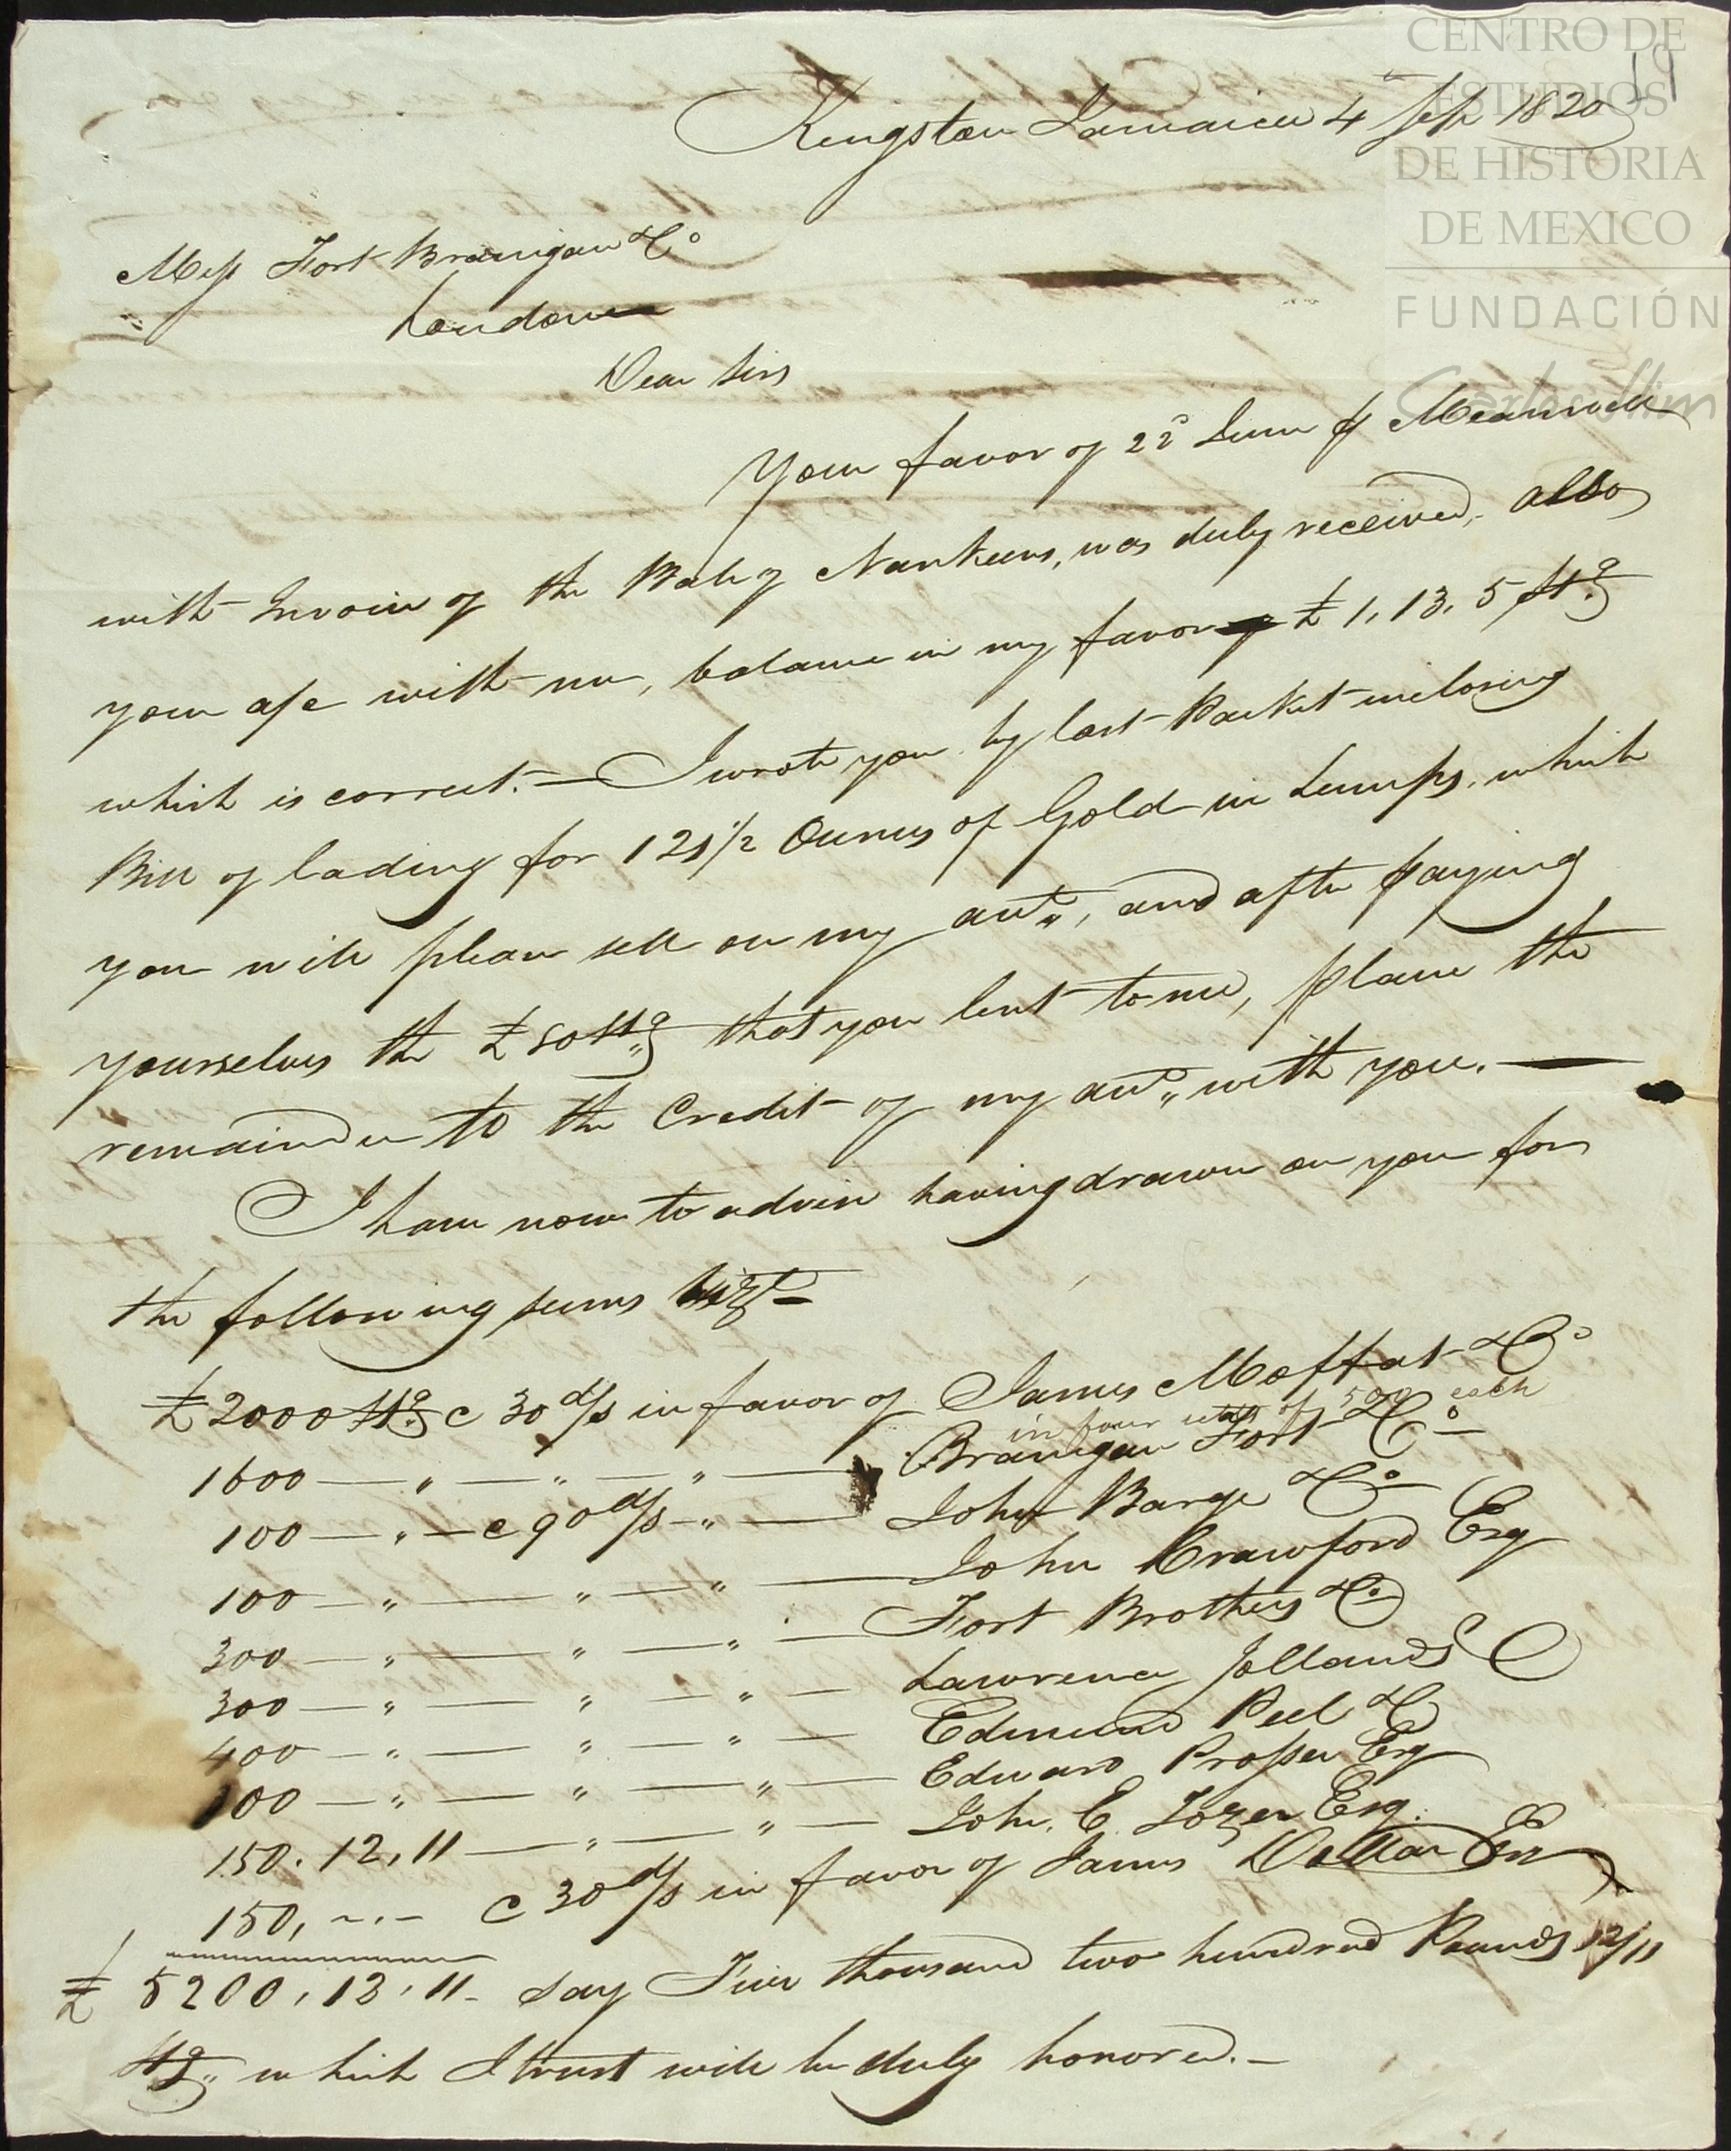 CENTRO DE
ESTUDIOS
DE HISTORIA
DE MEXICO
FUNDACIÓN
Carlos Slim
19
Kingston Jamaica 4 Sep 1820
Mess Fort Branigan & Co
London
Dear Sirs
Your favor of 22d June p Meanwell
with Invoice of the Bale of Nankeens, was duly received, also
your a/c with me, balance in my favor £ 1, 13, 5 Stg
which is correct. — I wrote you by last Packet inclosing
Bill of lading for 121 1/2 Ounces of Gold in Lumps, which
you will please sell on my acct, and after paying
yourselves the £ 50 Stg that you lent to me, place the
remainder to the Credit of my acct with you. —
I have now to advise having drawn on you for
the following sums vizt —
£ 2000 Stg @ 30 d/s in favor of James Moffat & Co
in four sets of 500 each
1600 — " — " — " — Branigan Fort & Co —
100 — " — @ 90 d/s — " — John Barge & Co —
100 — " — " — " — John Crawford Esq
300 — " — " — " — Fort Brothers & Co
300 — " — " — " — Lawrence Jollands
400 — " — " — " — Edmund Peel & C
100 — " — " — " — Edward Prosser Esq
150. 12, 11 — " — " — John. C. Lozer Esq.
150, ~ . – @ 30 d/s in favor of James Dellar Esq
£ 5200, 12, 11 – Say Five thousand two hundred Pounds 12/11
Stg, which I trust will be duly honored. –